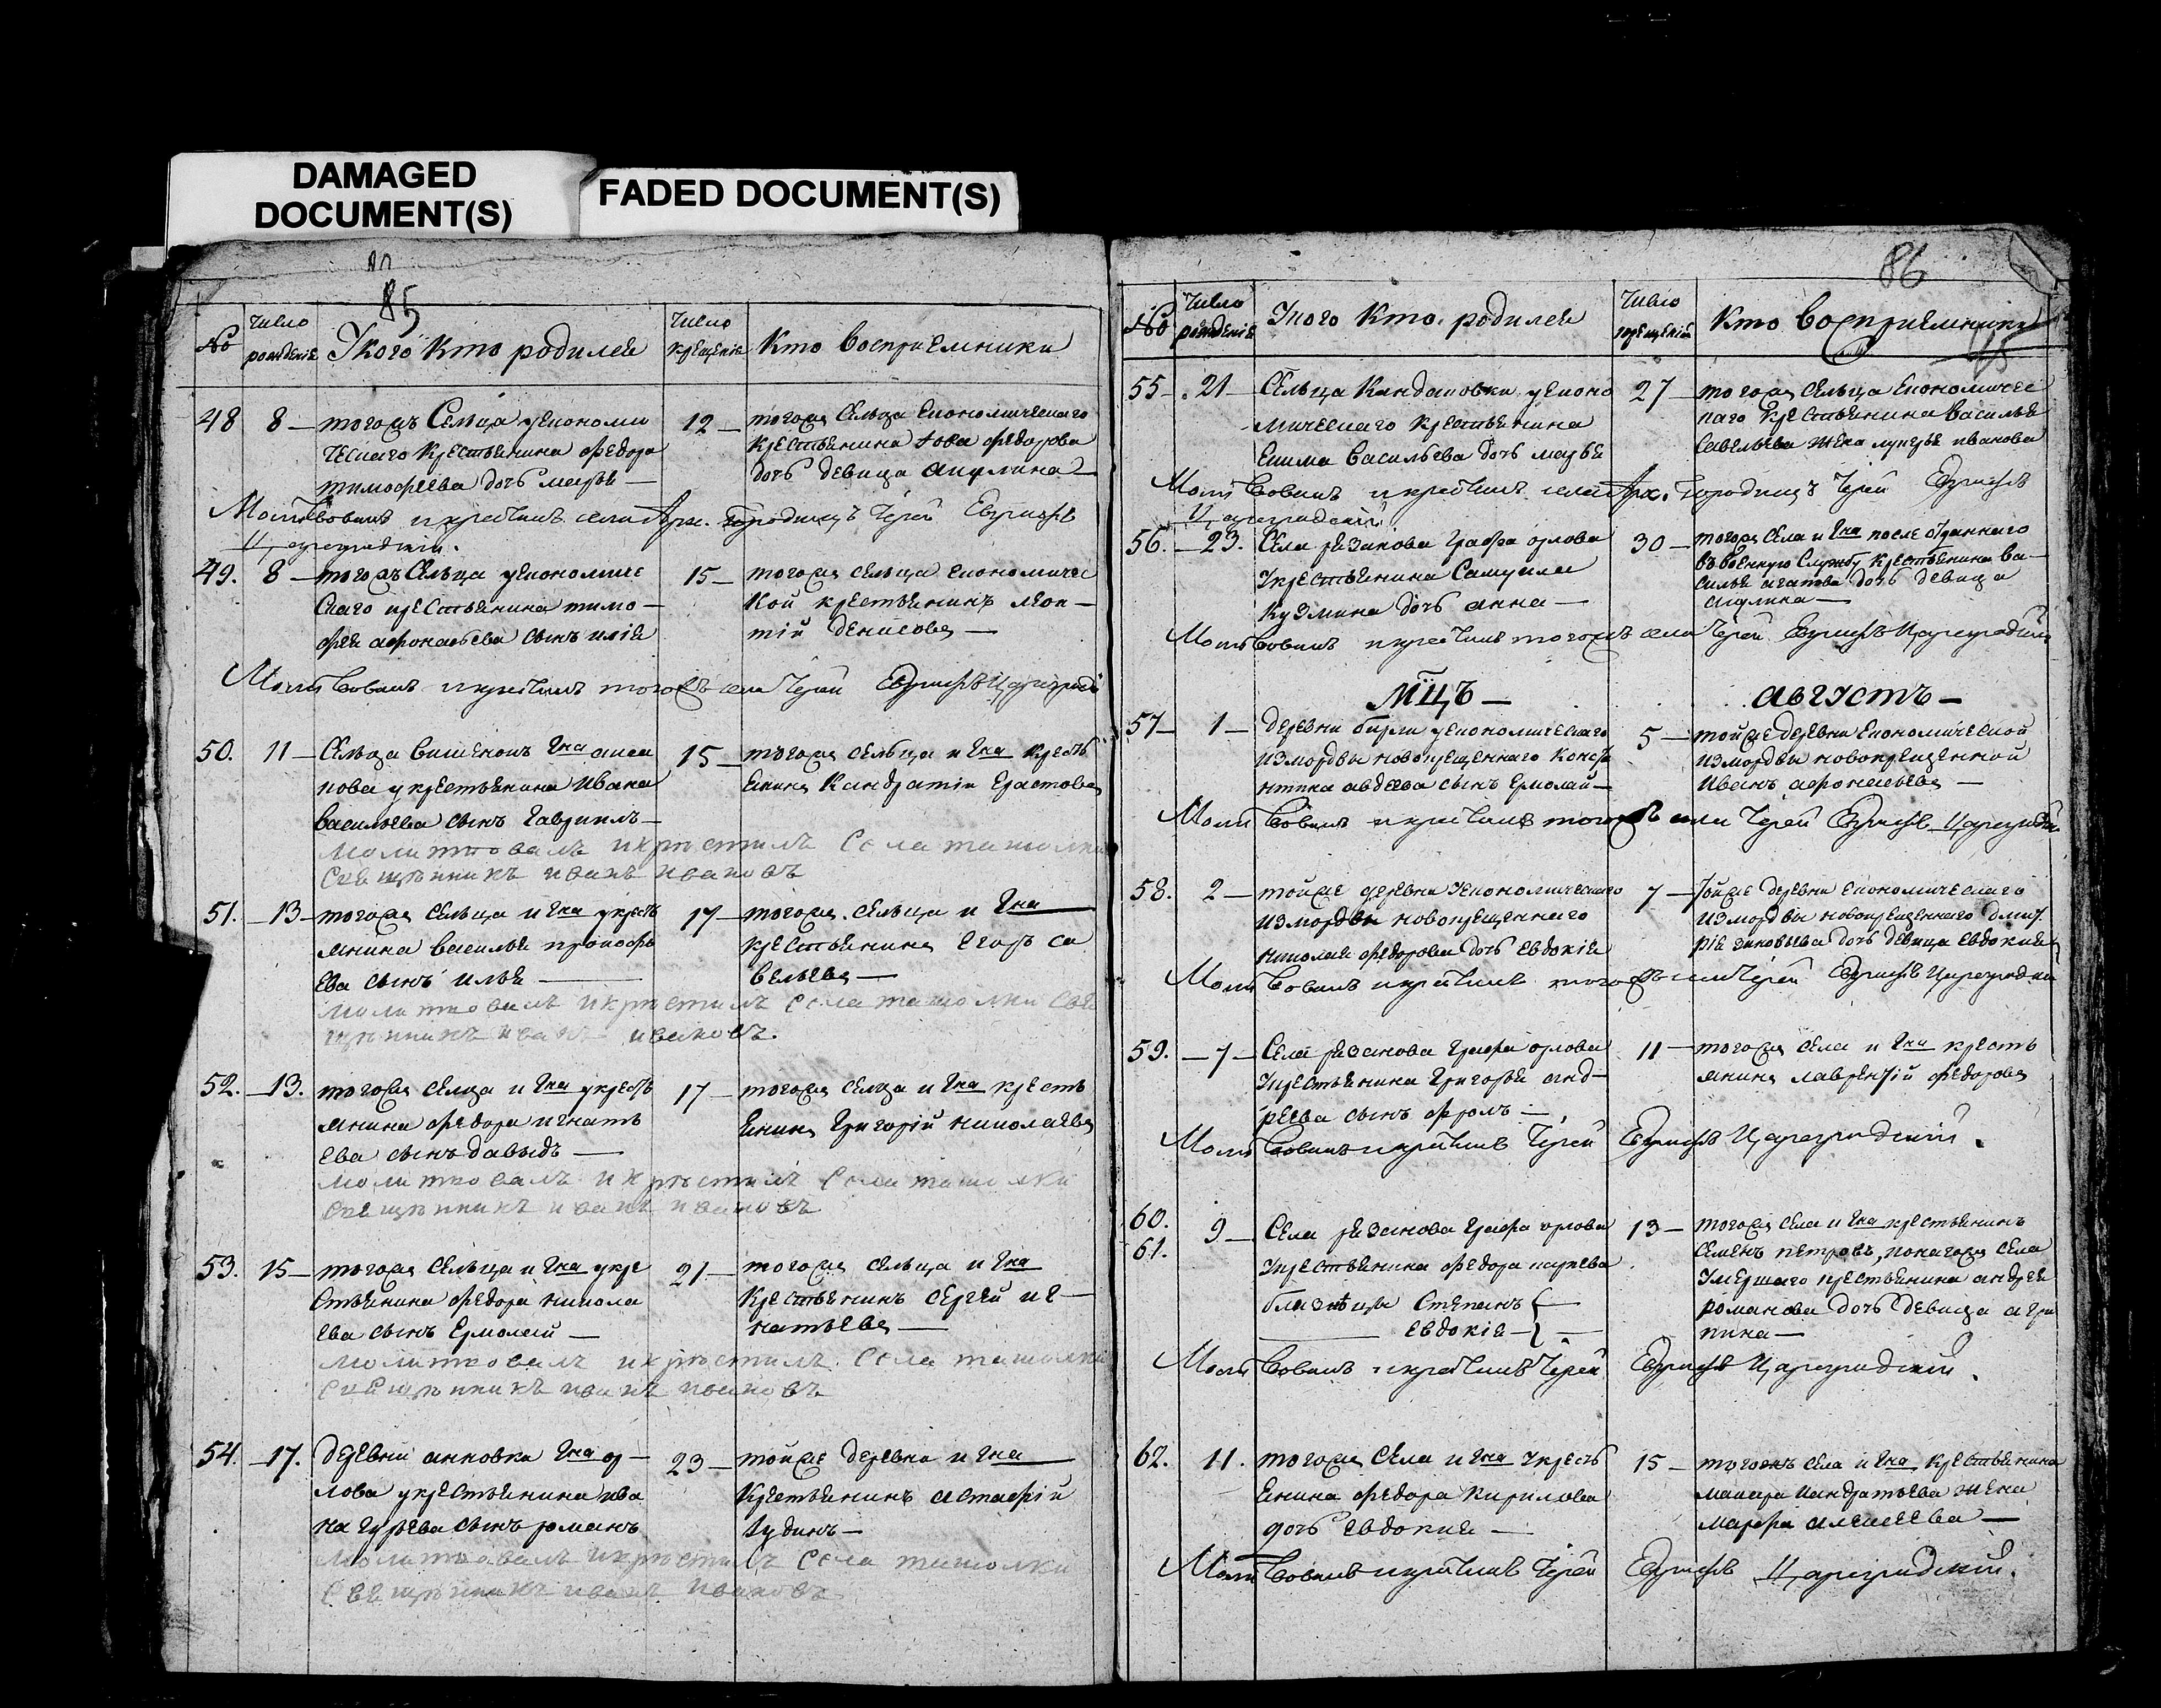 DAMAGED
DOCUMENT(S)
FADED DOCUMENT(S)
85
№
Число рожденiя
У кого кто родился
Число крещенiя
Кто восприемники
48
8 —
тогожъ Сельца у економи
ческаго крестьянина Федора
тимофеева дочь марья —
12 —
тогожъ Сельца економическаго
крестьянина Федорова
дочь девица акулина —
Молитвовалъ и крестилъ села Арх. городищъ Iерей
Цареградскiй.
49.
8 —
тогожъ Сельца у економиче
скаго крестьянина тимо —
фея афонасьева сынъ илiя
15 —
тогожъ сельца економиче
кой крестьянинъ леон —
тiй денисовъ —
Молитвовалъ и крестилъ тогожъ села Iерей
50.
11 —
Сельца вишенокъ Гна
нова у крестьянина Ивана
васильева сынъ Гаврилъ —
15 —
тогожъ сельца и Гна кресть
янинъ Кандратiи Ерастовъ
молитвовалъ и крѣстилъ Села ташолки
Свещѣнникъ иванъ ивановъ
51.
— 13 —
тогожъ сельца и Гна у кресть
янина василья прокофь
ева сынъ илья —
17 —
тогожъ сельца и Гна
крестьянинъ егоръ са
вельевъ —
молитвовалъ и крѣстилъ Села ташолки Све
щѣнникъ иванъ ивановъ.
52.
— 13.
тогожъ сельца и Гна у кресть
янина федора игнать
ева сынъ давыдъ —
17 —
тогожъ сельца и Гна кресть
янинъ Григорiй николаевъ
молитвовалъ и крѣстилъ Села ташолки
Свещѣнникъ иванъ ивановъ
53.
15 —
тогожъ сельца и Гна у кре
стьянина федора никола
ева сынъ Ермолай —
21 —
тогожъ сельца и Гна
крестьянинъ сергей иг —
натьевъ —
молитвовалъ и крѣстилъ Села ташолки
Свещѣнникъ иванъ ивановъ
54.
— 17.
деревни анновки Гна ор —
лова у крестьянина ива
на гурьева сынъ романъ
23 —
тойже деревни и Гна
крестьянинъ астафiй
молитвовалъ и крѣстилъ Села ташолки
Свещѣнникъ иванъ ивановъ
86
№
Число рожденiя
У кого кто родился
Число крещенiй
Кто восприемники
55 —
21 —
Сельца Кандаковки у еконо
мическаго крестьянина
екима васильева дочь марья
27 —
тогожъ сельца економичес
каго крестьянина василья
савельева жена лукерья иванова
Молитвовалъ и крестилъ села Арх. городищъ Iерей
Цареградскiй
56.
— 23.
Села рязанова Графа орлова
У крестьянина Самуила
Кузмина дочь анна —
30 —
тогожъ Села и Гна после отданнаго
въ военную Службу крестьянина ва —
силья агапова дочь девица
акулина —
Молитвовалъ и крестилъ тогожъ села Iерей Цареградскiй
МЦЪ — Августъ —
57 —
1 —
деревни бирли у економическаго
измордвы новокрещеннаго
авдеева сынъ Ермолай —
5 —
тойже деревни економической
измордвы новокрещенной
Иванъ афонасьевъ —
Молитвовалъ и крестилъ тогожъ села Iерей Цареградскiй
58.
2 —
тойже деревни у економическаго
измордвы новокрещеннаго
николая федорова дочь евдокiя
7 —
Тойже деревни економическаго
измордвы новокрещеннаго дмит
рiя дочь девица евдокия
Молитвовалъ и крестилъ тогожъ села Iерей Цареградскiй
59.
— 7 —
Села рязанова Графа орлова
У крестьянина Григорья анд —
реева сынъ фролъ —
11 —
тогожъ села и Гна кресть
янинъ лаврентiй федоровъ
Молитвовалъ и крестилъ Iерей Цареградскiй.
60.
61.
9 —
Села рязанова Графа орлова
У крестьянина федора карпева
близнецы Степанъ —
евдокiя —
13 —
тогожъ села и Гна крестьянинъ
Семенъ петровъ,
Умершаго крестьянина андрея
романова дочь девица агри
пина —
Молитвовалъ и крестилъ Iерей Цареградскiй.
62.
11.
тогожъ Села и Гна у кресть
янина федора кирилова
дочь евдокия —
15 —
тогожъ села и Гна крестьянина
макара кандратьева жена
марфа алексеева —
Молитвовалъ и крестилъ Iерей Цареградскiй.